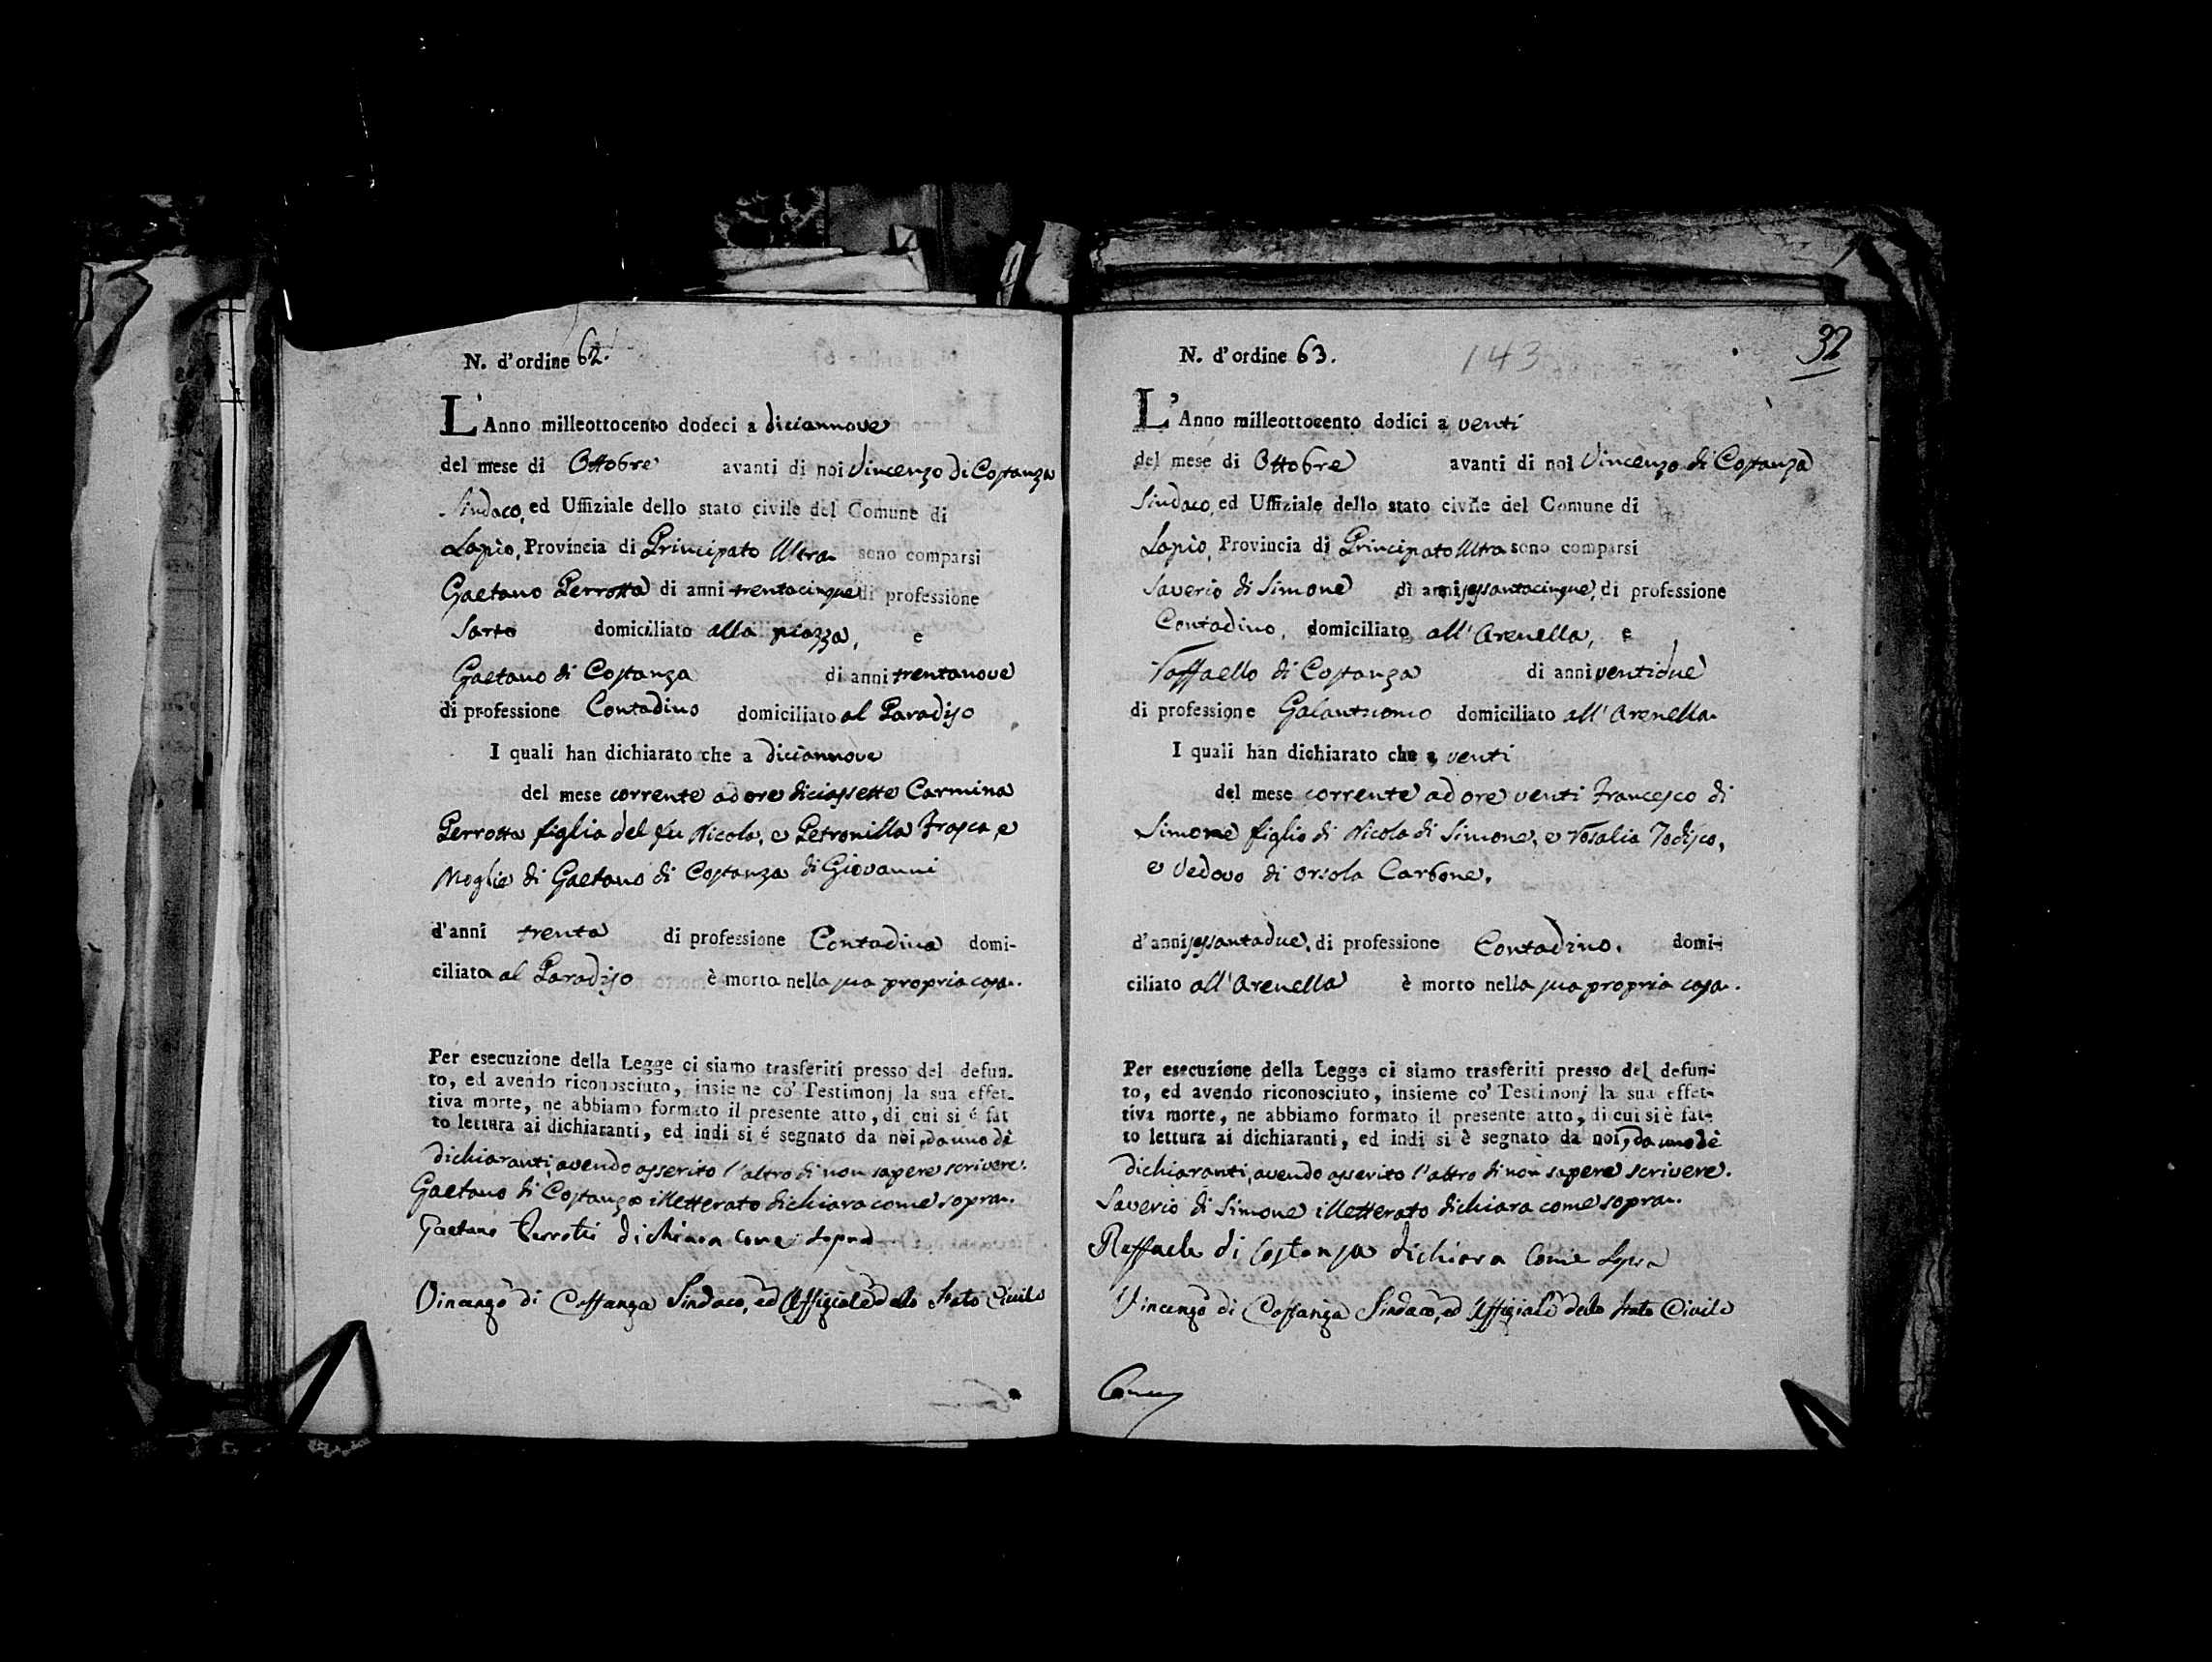 N. d'ordine 62.
L'Anno milleottocento dodeci a diciannove
del mese di Ottobre avanti di noi Vincenzo di Costanza
Sindaco, ed Uffiziale dello stato civile del Comune di
Lapio, Provincia di Principato Ultra sono comparsi
Gaetano Perrotta di anni trentacinque di professione
Sarto domiciliato alla piazza, e
Gaetano di Costanza di anni trentanove
di professione Contadino domiciliato al Paradiso
I quali han dichiarato che a diciannove
del mese corrente ad ore diciassette Carmina
Perrotta figlia del fu Nicola, e Petronilla Frasca, e
Moglie di Gaetano di Costanza di Giovanni
d'anni trenta di professione Contadina domi-
ciliata al Paradiso è morta nella sua propria casa.
Per esecuzione della Legge ci siamo trasferiti presso del defun-
to, ed avendo riconosciuto, insieme co' Testimonj la sua effet-
tiva morte, ne abbiamo formato il presente atto, di cui si é fat
to lettura ai dichiaranti, ed indi si é segnato da noi, da uno dè
dichiaranti, avendo asserito l'altro di non sapere scrivere.
Gaetano di Costanza illetterato dichiara come sopra.
Gaetano Perrotti dichiara come sopra
Vincenzo di Costanza Sindaco, ed Uffiziale dello Stato Civile
N. d'ordine 63.
143
32
L'Anno milleottocento dodici a venti
del mese di Ottobre avanti di noi Vincenzo di Costanza
Sindaco, ed Uffiziale dello stato civile del Comune di
Lapio, Provincia di Principato Ultra sono comparsi
Saverio di Simone di anni sessantacinque, di professione
Contadino, domiciliato all'Arenella, e
Raffaello di Costanza di anni ventidue
di professione Galantuomo domiciliato all'Arenella.
I quali han dichiarato che a venti
del mese corrente ad ore venti Francesco di
Simone figlio di Nicola di Simone, e Rosalia Todisco,
e Vedovo di Orsola Carbone.
d'anni sessantadue, di professione Contadino, domi-
ciliato all'Arenella è morto nella sua propria casa.
Per esecuzione della Legge ci siamo trasferiti presso del defun-
to, ed avendo riconosciuto, insieme co' Testimonj la sua effet-
tiva morte, ne abbiamo formato il presente atto, di cui si è fat-
to lettura ai dichiaranti, ed indi si è segnato da noi, da uno dè
dichiaranti, avendo asserito l'altro di non sapere scrivere.
Saverio di Simone illetterato dichiara come sopra.
Raffaele di Costanza dichiara come sopra
Vincenzo di Costanza Sindaco, ed Uffiziale dello Stato Civile